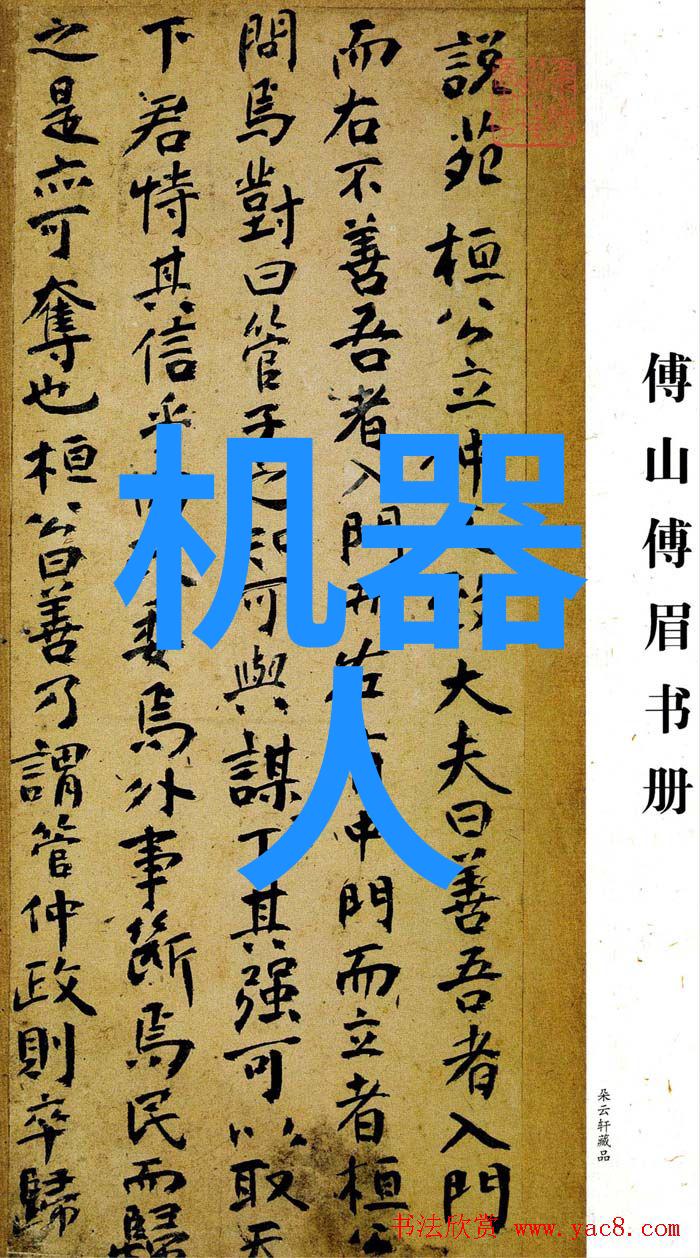 傅山傅眉书册
朵云轩藏品
說苑 桓公立仲大夫曰善吾者入門
而右不善吾者入門中門而立者桓公
問焉對曰管子之知可與謀其强可以取天
下君恃其信乎委焉外事斷焉民而歸
之是亦可奪也桓公曰善乃謂管仲政則卒歸
机器
人
书法欣赏 www.yac8.com